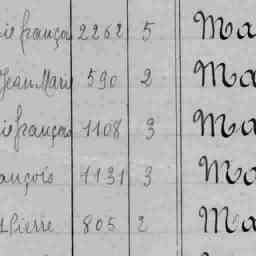 ie françois 2262 5 Ma
Jean Marie 590 2 Ma
ie françois 1108 3 Ma
ançois 1131 3 Ma
Pierre 805 2 Ma